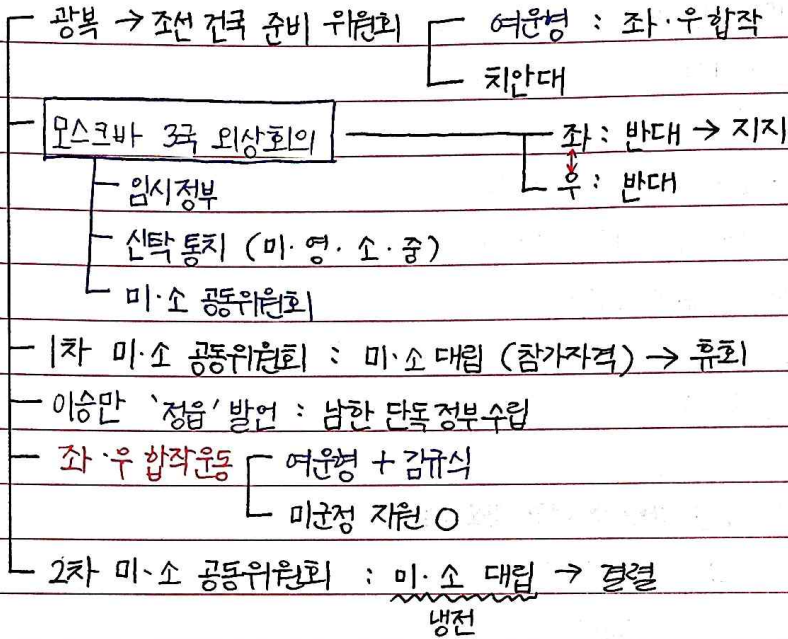 광복 → 조선 건국 준비 위원회 여운형 : 좌·우 합작
치안대
모스크바 3국 외상회의 좌 : 반대 → 지지
우 : 반대
임시정부
신탁 통치 (미·영·소·중)
미·소 공동위원회
1차 미·소 공동위원회 : 미·소 대립 (참가자격) → 휴회
이승만 '정읍' 발언 : 남한 단독정부수립
좌·우 합작운동 여운형 + 김규식
미군정 지원 O
2차 미·소 공동위원회 : 미·소 대립 → 결렬
냉전